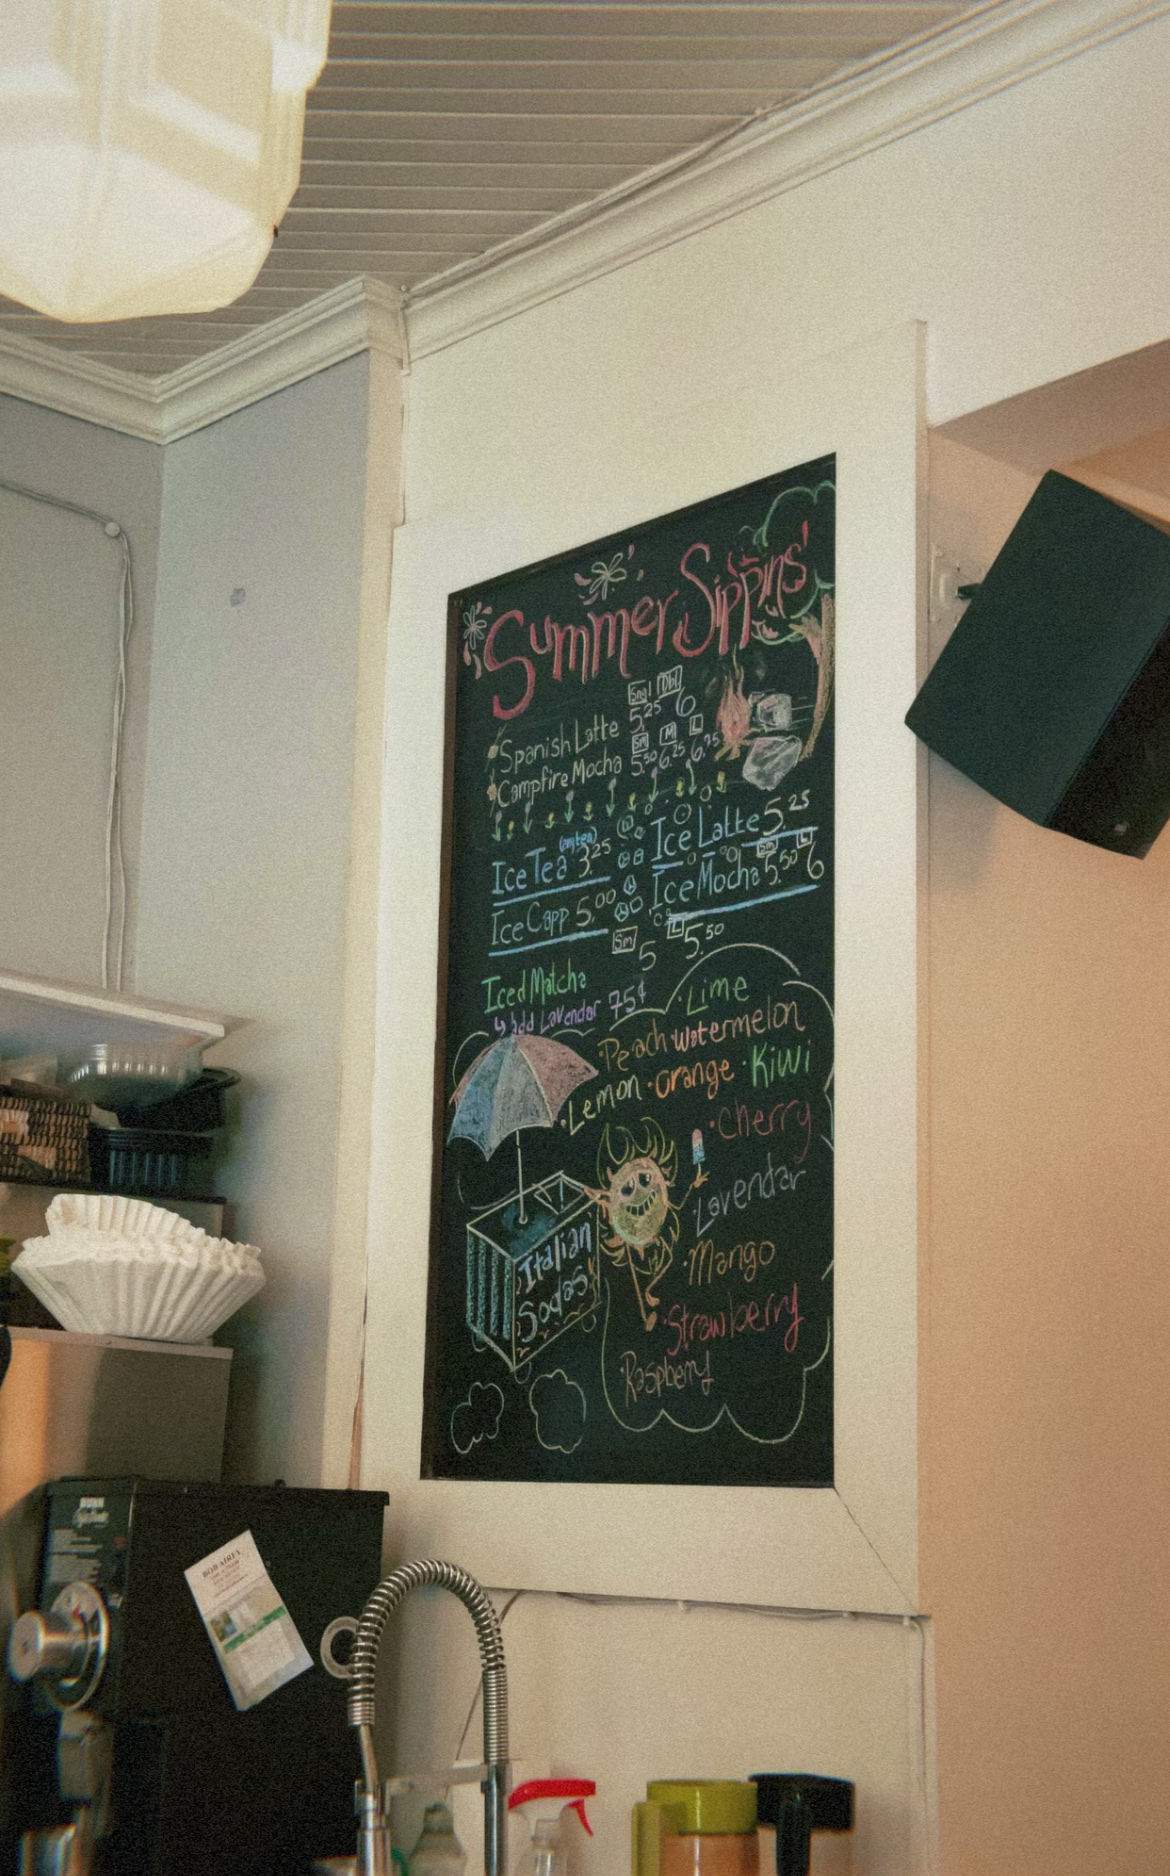 Summer Sippins'
Sngl Dbl
Spanish Latte 5.25 6
Sm M L
Campfire Mocha 5.50 6.25 6.75
Ice Tea 3.25
Ice Latte 5.25
Sm L
Ice Capp 5.00
Ice Mocha 5.50 6
Sm L
Iced Matcha 5 5.50
add Lavendar 75¢
·Lime
·Peach ·Watermelon
·Lemon ·Orange ·Kiwi
·Cherry
·Lavendar
·Mango
·Strawberry
·Raspberry
Italian
Sodas
BUNN
BOB AIREY